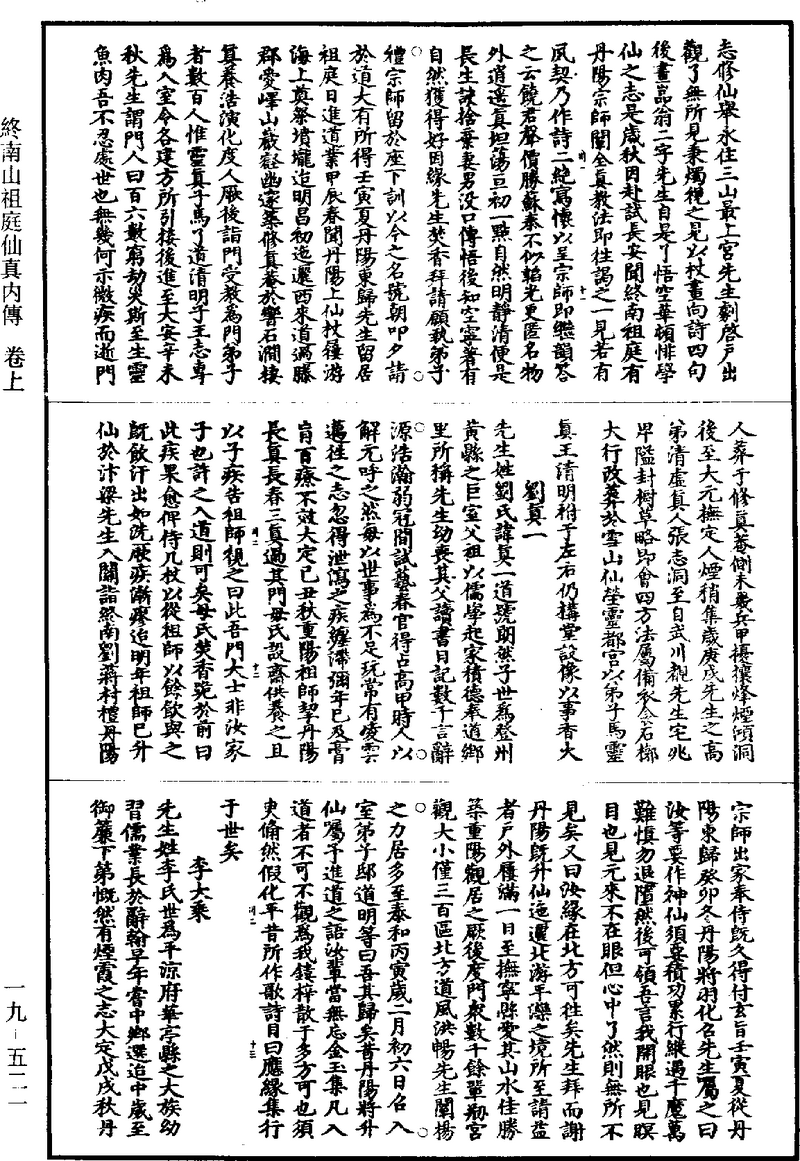 志修仙舉永住三山最上宮先生劃啓戶出
觀了無所見秉燭視之見以杖畫向詩四句
後畫畐翁二字先生自是了悟空華頓悱學
仙之志是歲秋因赴試長安聞終南祖庭有
丹陽宗師闡全真教法即往謁之一見若有
夙契乃作詩二絕寫懷以呈宗師即繼韻答
之云饒君聲價勝蘇秦不似韜光更匿名物
外逍遙真坦蕩亘初一點自然明靜清便是
長生訣捨棄妻男沒口傳悟後知空寧著有
自然獲得好因緣先生焚香拜請願執弟子
禮宗師留於座下訓以今之名號朝叩夕請
於道大有所得壬寅夏丹陽東歸先生留居
祖庭日進道業甲辰春聞丹陽上仙杖屨游
海上奠祭墳壠迨明昌初迤邐西來道過滕
郡愛嶧山巖壑幽邃築修真菴於響石澗棲
真養浩演化度人厥後詣門受教為門弟子
者數百人惟靈真子馬了道清明子王志專
為入室令各建方所引接後進至大安辛未
秋先生謂門人曰百六數窮劫災斯至生靈
魚肉吾不忍處世也無幾何示微疾而逝門
人葬于修真菴側未幾兵甲擾攘烽煙澒洞
後至大元撫定人煙稍集歲庚戌先生之高
弟清虛真人張志洞至自武川觀先生宅兆
卑隘封樹草略即會四方法屬備衾石槨
大行改葬於雪山仙塋靈都宮以弟子馬靈
真王清明祔于左右仍構堂設像以事香火
劉真一
先生姓劉氏諱真一道號朗然子世為登州
黃縣之巨室父祖以儒學起家積德奉道鄉
里所稱先生幼喪其父讀書日記數千言辭
源浩瀚弱冠間試藝春官得占高甲時人以
解元呼之然每以世事為不足玩常有凌雲
邁往之志忽得泄瀉之疾纏滯彌年已及膏
肓百療不效大定己丑秋重陽祖師挈丹陽
長真長春三真過其門母氏設齋供養之且
以子疾告祖師視之曰此吾門大士非汝家
子也許之入道則可矣母氏焚香跪於前曰
此疾果愈俾侍几杖以從祖師以餘飲與之
既飲汗出如洗厥疾漸瘳迨明年祖師已升
仙於汴梁先生入關詣終南劉蔣村禮丹陽
宗師出家奉侍既久得付玄旨壬寅夏從丹
陽東歸癸卯冬丹陽將羽化召先生屬之曰
汝等要作神仙須要積功累行縱遇千魔萬
難慎勿退墮然後可領吾言我開眼也見瞑
目也見元來不在眼但心中了然則無所不
見矣又曰汝緣在北方可往矣先生拜而謝
丹陽既升仙迤邐北游平灤之境所至請益
者戶外屨滿一日至撫寧縣愛其山水佳勝
築重陽觀居之厥後度門衆數千餘輩剏宮
觀大小僅三百區北方道風洪暢先生闡揚
之力居多至泰和丙寅歲二月初六日召入
室弟子邸道明等曰吾其歸矣昔丹陽將升
仙屬予進道之語汝輩當無忘金玉集凡入
道者不可不觀為我鋟梓散于多方可也須
臾翛然假化平昔所作歌詩目曰應緣集行
于世矣
李大乘
先生姓李氏世為平涼府華亭縣之大族幼
習儒業長於辭翰早年嘗中鄉選迨中歲至
御簾下第慨然有煙霞之志大定戊戌秋丹
終南山祖庭仙真內傳　卷上
一九－五二二